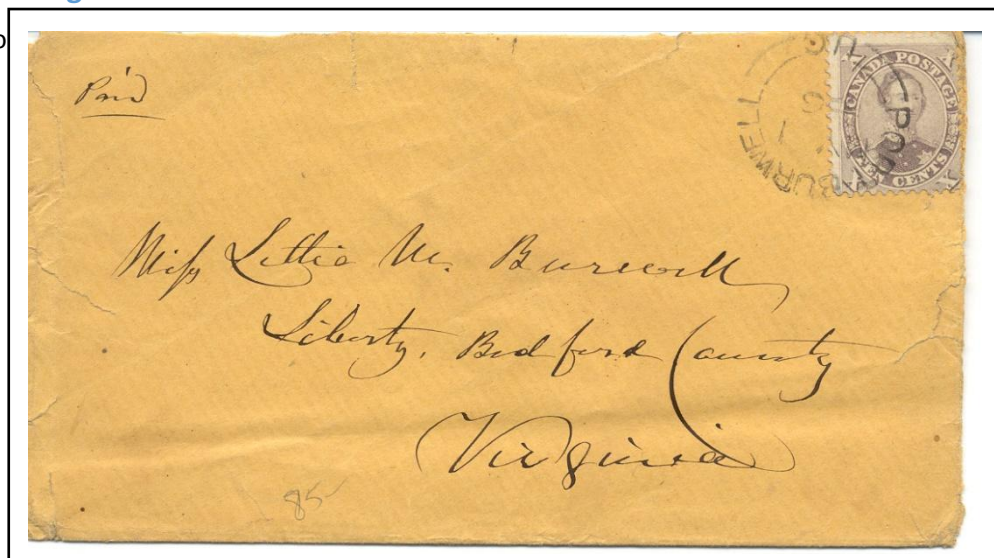 Paid
BURWELL
CANADA POSTAGE
TEN CENTS
Miss Lettie M. Burwell
Liberty, Bedford County
Virginia
85